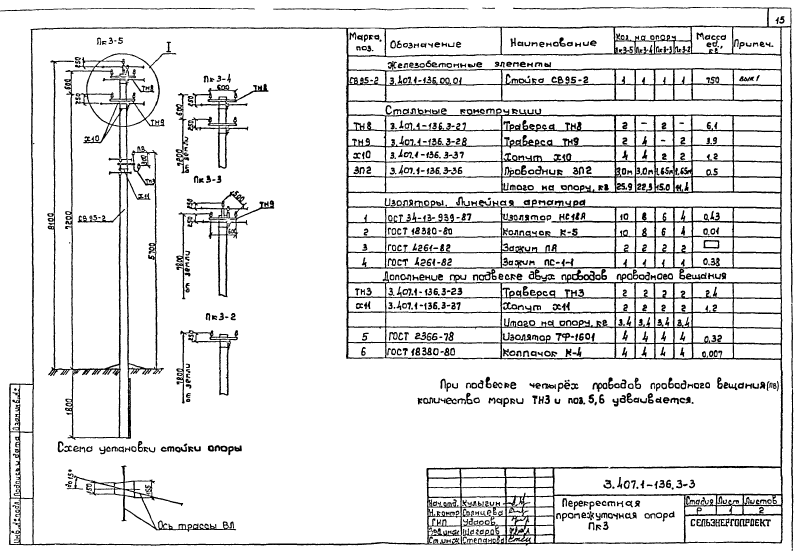 15
Пк3-5
I
250
600
ТН8
ТН9
х10
ПВ
ТН3
х11
СВ95-2
8100
7200
5700
1800
Пк3-4
600
ТН8
250
600
7200
от земли
Пк3-3
500
ТН9
250
7800
от земли
Пк3-2
250
7800
от земли
Схема установки стойки опоры
Ось трассы ВЛ
Марка, поз. Обозначение Наименование Кол. на опору Масса ед., кг Примеч.
Пк3-5 Пк3-4 Пк3-3 Пк3-2
Железобетонные элементы
СВ95-2 3.407.1-136.00.01 Стойка СВ95-2 1 1 1 1 750 вып.1
Стальные конструкции
ТН8 3.407.1-136.3-27 Траверса ТН8 2 – 2 – 6,1
ТН9 3.407.1-136.3-28 Траверса ТН9 2 4 – 2 3.9
х10 3.407.1-136.3-37 Хомут х10 4 4 2 2 1.2
ЗП2 3.407.1-136.3-36 Проводник ЗП2 3,0м 3,0м 1,65м 1,65м 0.5
Итого на опору, кг 25.9 22,3 15.0 11,4
Изоляторы. Линейная арматура
1 ОСТ 34-13-939-87 Изолятор НС18А 10 8 6 4 0,43
2 ГОСТ 18380-80 Колпачок К-5 10 8 6 4 0,01
3 ГОСТ 4261-82 Зажим ПА 2 2 2 2
4 ГОСТ 4261-82 Зажим ПС-1-1 1 1 1 1 0.38
Дополнение при подвеске двух проводов проводного вещания
ТН3 3.407.1-136.3-23 Траверса ТН3 2 2 2 2 2.4
х11 3.407.1-136.3-37 Хомут х11 2 2 2 2 1,2
Итого на опору, кг 3.4 3,4 3,4 3,4
5 ГОСТ 2366-78 Изолятор ТФ-1601 4 4 4 4 0,32
6 ГОСТ 18380-80 Колпачок К-4 4 4 4 4 0,007
При подвеске четырёх проводов проводного вещания (ПВ)
количество марки ТН3 и поз. 5,6 удваивается.
3.407.1-136.3-3
Нач.отд. Кулыгин
Н.контр Солнцева
ГИП Ударов
Степанова
Перекрестная
промежуточная опора
Пк3
Стадия Лист Листов
Р 1 2
СЕЛЬЭНЕРГОПРОЕКТ
Инв.№подл. Подпись и дата Взам.инв.№